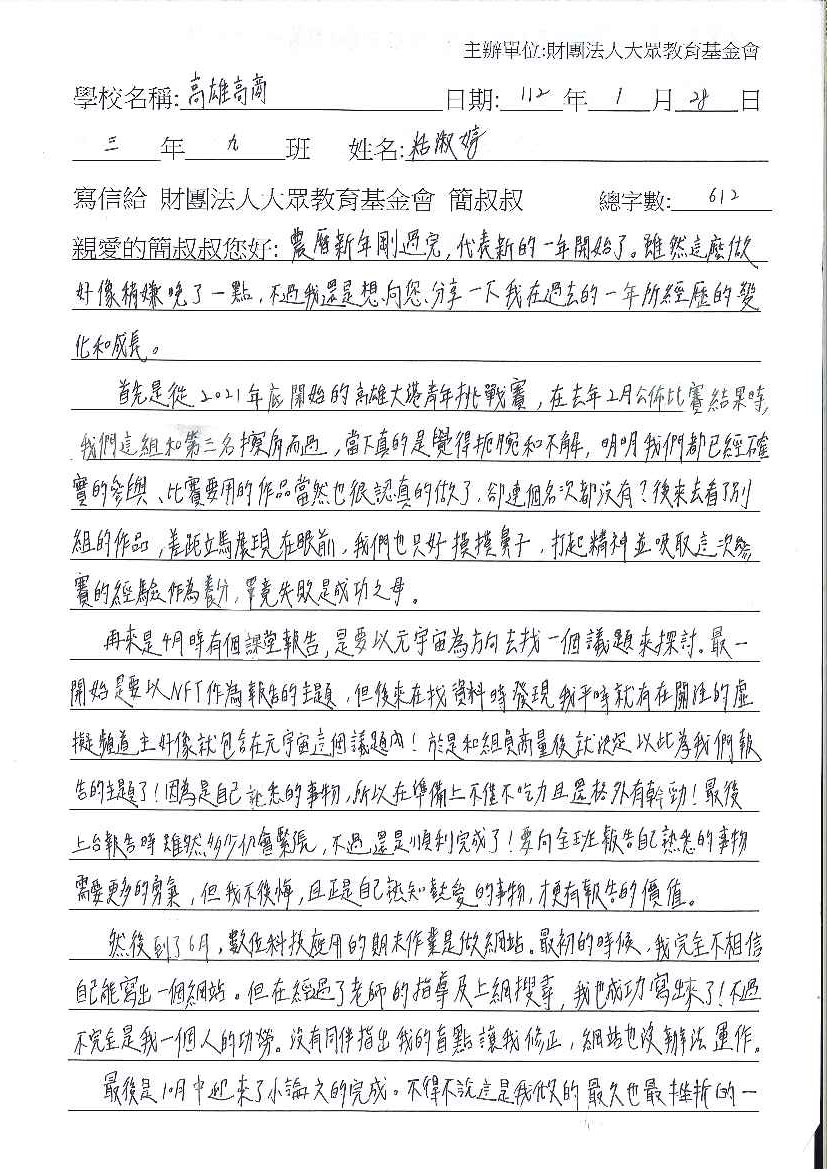 主辦單位:財團法人大眾教育基金會
學校名稱:高雄高商 日期: 112 年 1 月 28 日
三 年 九 班 姓名:粘淑婷
寫信給 財團法人大眾教育基金會 簡叔叔 總字數: 612
親愛的簡叔叔您好: 農曆新年剛過完,代表新的一年開始了。雖然這麼做
好像稍嫌晚了一點,不過我還是想向您分享一下我在過去的一年所經歷的變
化和成長。
首先是從2021年底開始的高雄大港青年挑戰賽,在去年2月公佈比賽結果時,
我們這組和第三名擦肩而過,當下真的是覺得扼腕和不解,明明我們都已經確
實的參與、比賽要用的作品當然也很認真的做了,卻連個名次都沒有?後來去看了別
組的作品,差距立馬展現在眼前,我們也只好摸摸鼻子,打起精神並吸取這次參
賽的經驗作為養分,畢竟失敗是成功之母。
再來是4月時有個課堂報告,是要以元宇宙為方向去找一個議題來探討。最一
開始是要以NFT作為報告的主題,但後來在找資料時發現我平時就有在關注的虛
擬頻道主好像就包含在元宇宙這個議題內!於是和組員商量後就決定以此為我們報
告的主題了!因為是自己熟悉的事物,所以在準備上不僅不吃力且還格外有幹勁!最後
上台報告時雖然多少仍會緊張,不過還是順利完成了!要向全班報告自己熟悉的事物
需要更多的勇氣,但我不後悔,且正是自己熟知熱愛的事物,才更有報告的價值。
然後到了6月,數位科技應用的期末作業是做網站。最初的時候,我完全不相信
自己能寫出一個網站。但在經過了老師的指導及上網搜尋,我也成功寫出來了!不過
不完全是我一個人的功勞。沒有同伴指出我的盲點讓我修正,網站也沒辦法運作。
最後是10月中迎來了小論文的完成。不得不說這是我做的最久也最挫折的一